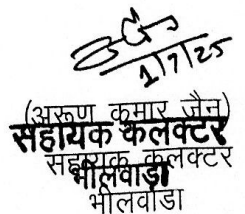 1/7/25
(अरूण कुमार जैन)
सहायक कलक्टर
सहायक कलक्टर
भीलवाड़ा
भीलवाडा